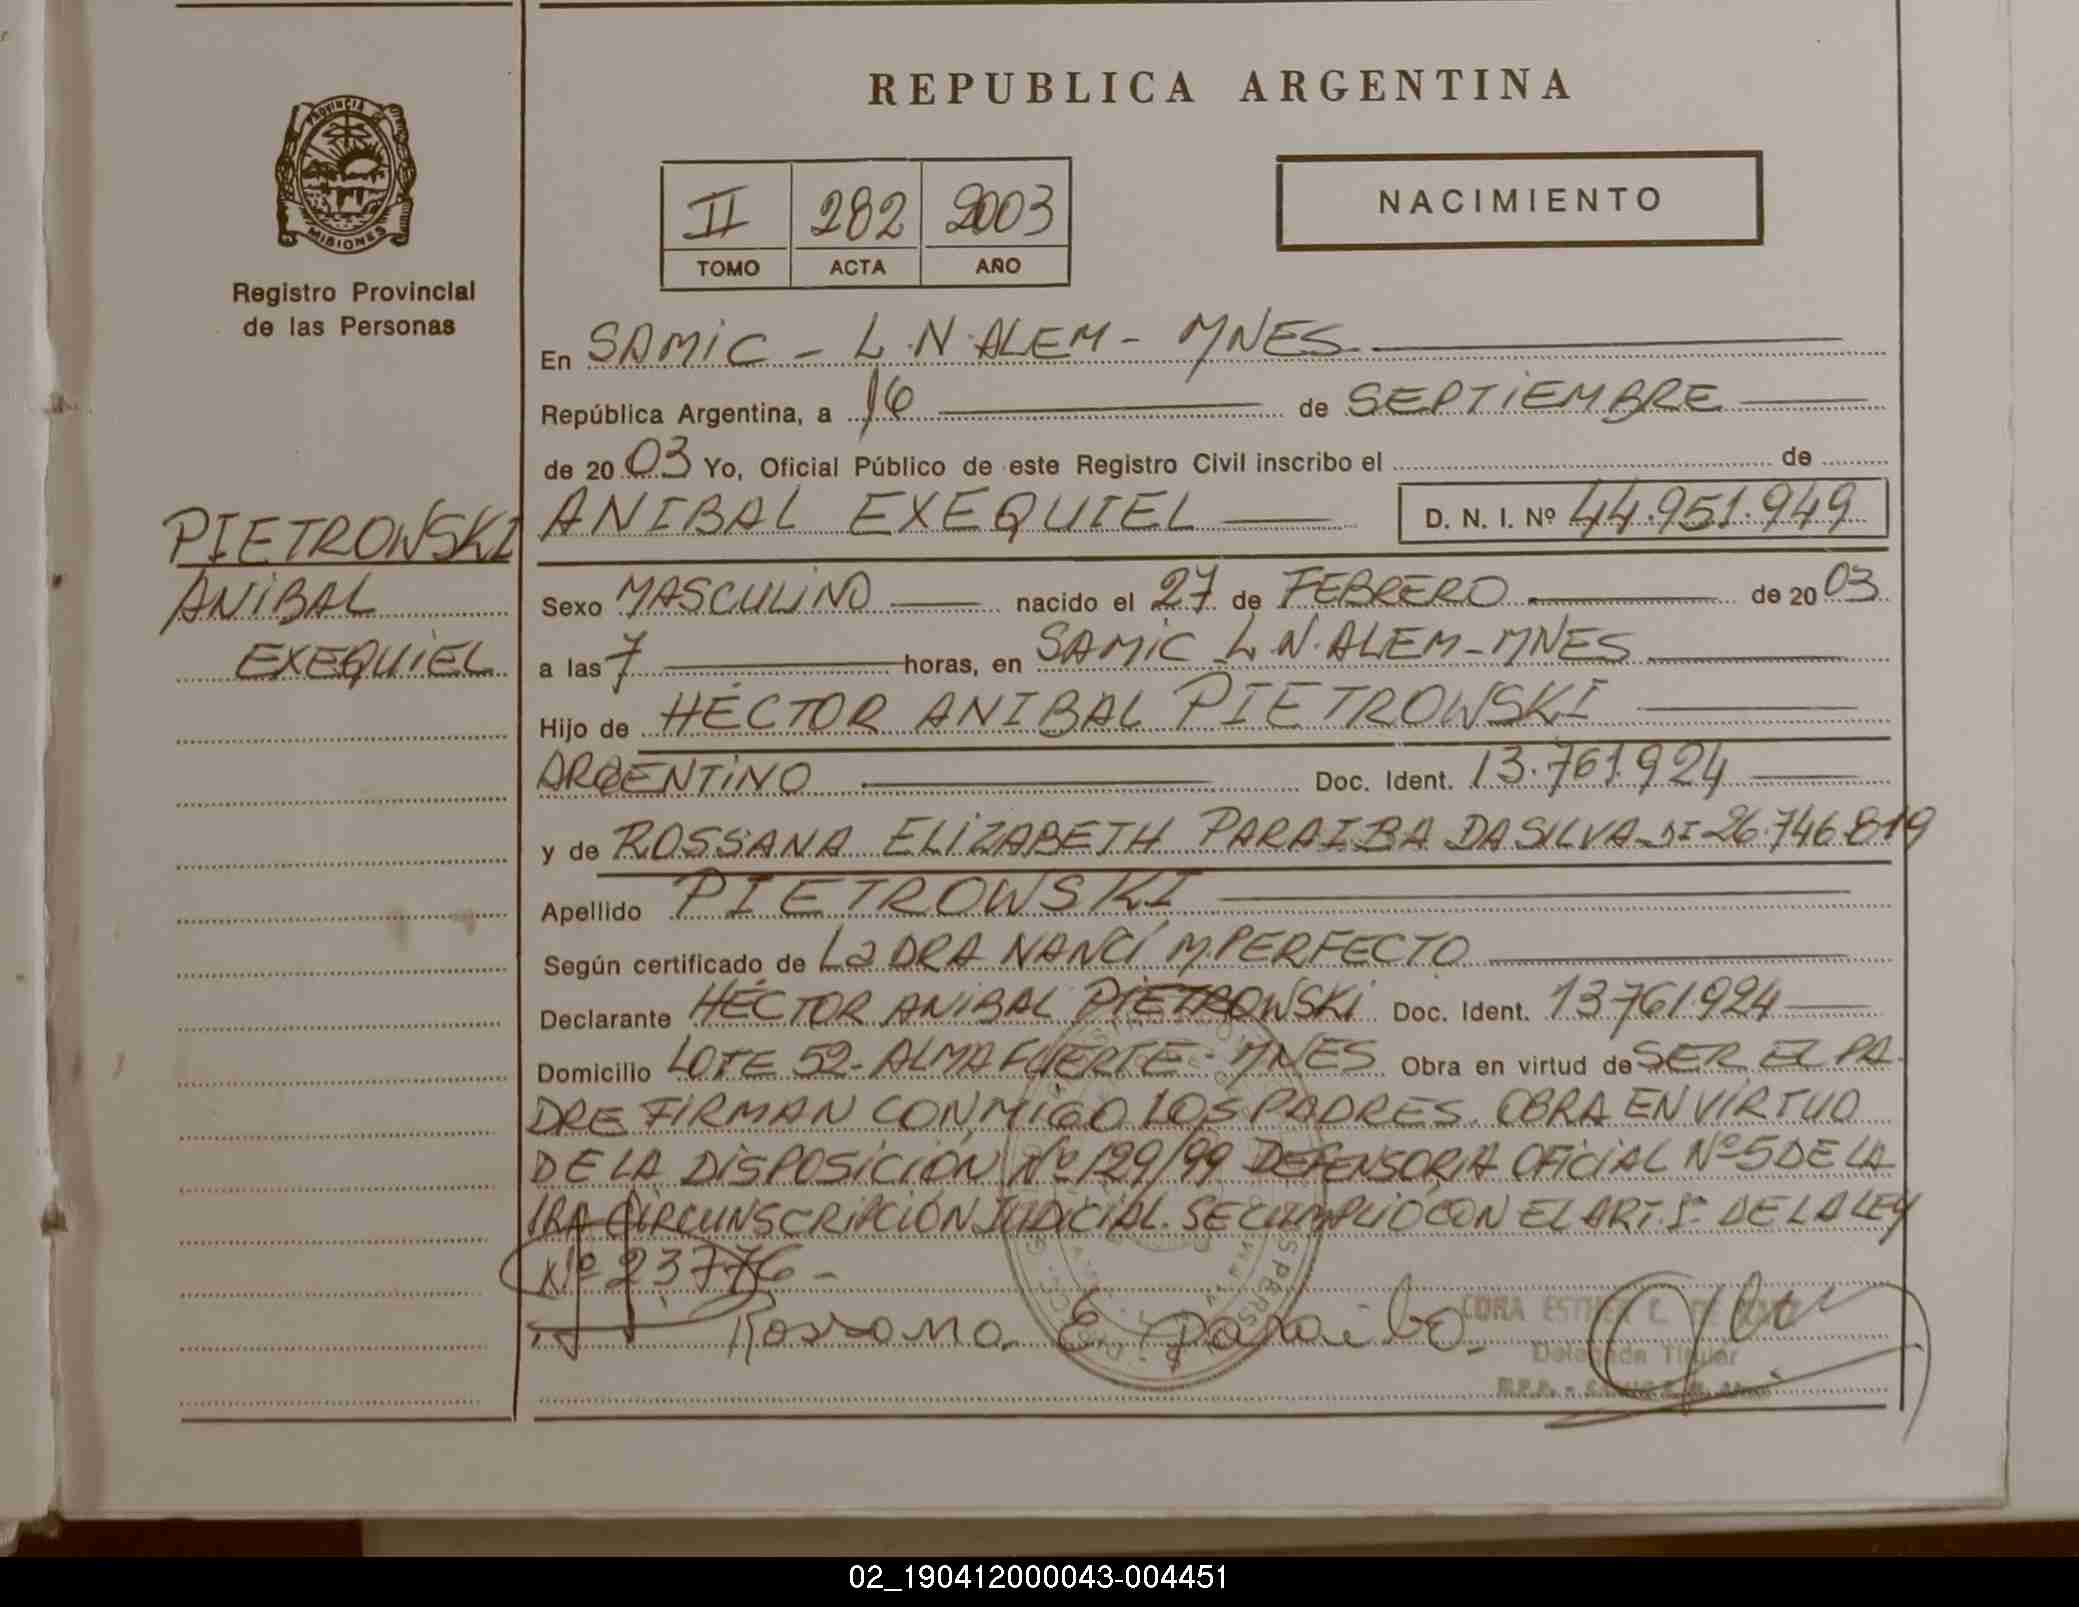 REPUBLICA ARGENTINA
PROVINCIA DE
MISIONES
Registro Provincial
de las Personas
II 282 2003
TOMO ACTA AÑO
NACIMIENTO
En SAMIC - L.N.ALEM - MNES
República Argentina, a 16 de SEPTIEMBRE
de 2003 Yo, Oficial Público de este Registro Civil inscribo el de
PIETROWSKI
ANIBAL
EXEQUIEL
ANIBAL EXEQUIEL D. N. I. Nº 44.951.949
Sexo MASCULINO nacido el 27 de FEBRERO de 2003
a las 7 horas, en SAMIC L.N.ALEM-MNES
Hijo de HÉCTOR ANIBAL PIETROWSKI
ARGENTINO Doc. Ident. 13.761.924
y de ROSSANA ELIZABETH PARAIBA DA SILVA-DI 26.746.819
Apellido PIETROWSKI
Según certificado de La DRA NANCI M.PERFECTO
Declarante HÉCTOR ANIBAL PIETROWSKI Doc. Ident. 13761924
Domicilio LOTE 52-ALMAFUERTE-MNES Obra en virtud de SER EL PA-
DRE FIRMAN CONMIGO LOS PADRES. OBRA EN VIRTUD
DE LA DISPOSICIÓN Nº 129/99 DEFENSORIA OFICIAL Nº 5 DE LA
1RA CIRCUNSCRIPCIÓN JUDICIAL. SE CUMPLIÓ CON EL ART. 5º DE LA LEY
Nº 23776-
Rossana E paraiba
ESTHER
Delegada Titular
02_190412000043-004451